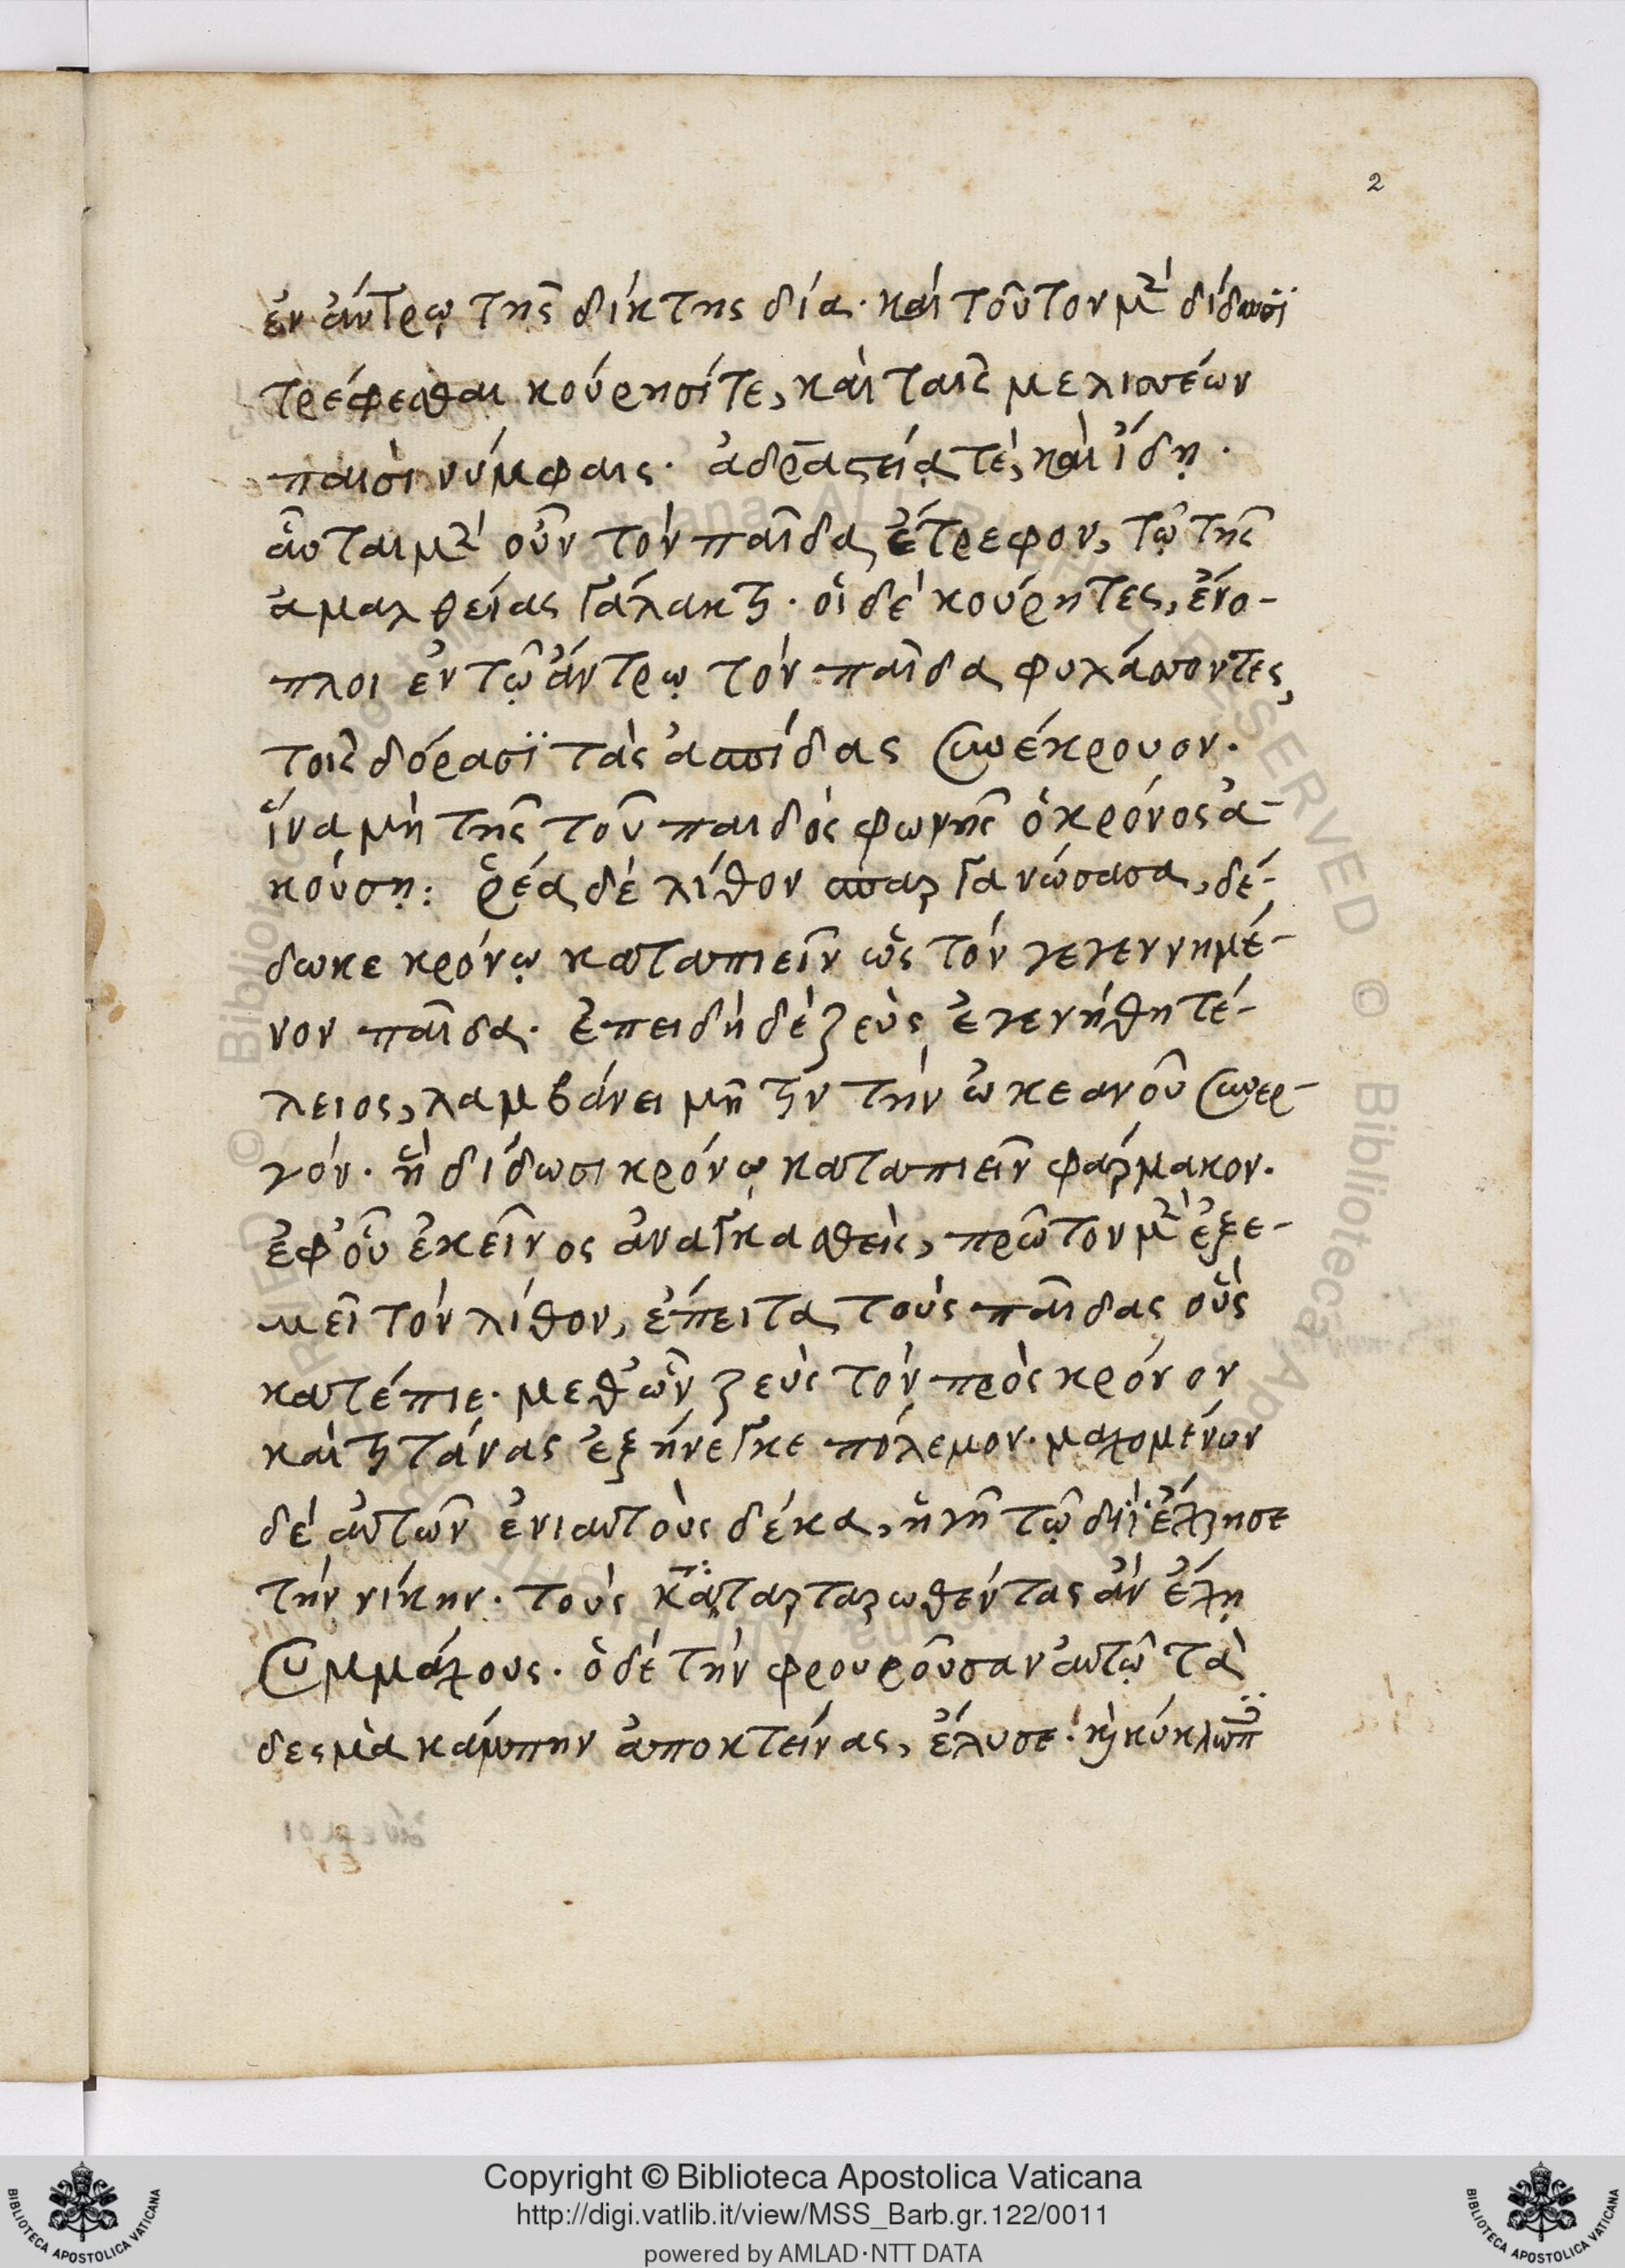 2
ἐν ἄντρω τῆς δίκτης δία· καὶ τοῦτον μὲν δίδωσϊ
τρέφεσθαι κούρησίτε, καὶ ταῖς μελισσέων
παισὶ νύμφαις· ἀδραστείᾳ τὲ, καὶ ἴδῃ·
αὗται μὲν οὖν τὸν παῖδα ἔτρεφον, τῷ τῆς
ἀμαλθείας γάλακτι· οἱ δὲ κούρητες, ἔνο-
πλοι ἐν τῷ ἄντρῳ τὸν παῖδα φυλάσσοντες,
τοῖς δόρασϊ τὰς ἀσπίδας συνέκρουον·
ἵνα μὴ τῆς τοῦ παιδὸς φωνῆς ὁ κρόνος ἀ-
κούσῃ: ῥέα δὲ λίθον σπαργανώσασα, δέ-
δωκε κρόνῳ καταπιεῖν ὡς τὸν γεγεννημέ-
νον παῖδα· ἐπειδὴ δὲ ζεὺς ἐγενήθη τέ-
λειος, λαμβάνει μῆτιν τὴν ὠκεανοῦ συνερ-
γόν· ἣ δίδωσι κρόνῳ καταπιεῖν φάρμακον·
ἐφ' οὗ ἐκεῖνος ἀναγκασθεὶς, πρῶτον μὲν ἐξε-
μεῖ τὸν λίθον, ἔπειτα τοὺς παῖδας οὓς
κατέπιε· μεθ' ὧν ζεὺς τὸν πρὸς κρόνον
καὶ τιτάνας ἐξήνεγκε πόλεμον· μαχομένων
δὲ αὐτῶν ἐνιαυτοὺς δέκα, ἡ γῆ τῷ διῒ ἔχρησε
τὴν νίκην· τοὺς καταταρταρωθέντας ἂν ἔχῃ
συμμάχους· ὁ δὲ τὴν φρουροῦσαν αὐτῷ τὰ
δεσμὰ κάμπην ἀποκτείνας, ἔλυσε· καὶ κύκλωπ
Copyright © Biblioteca Apostolica Vaticana
http://digi.vatlib.it/view/MSS_Barb.gr.122/0011
powered by AMLAD·NTT DATA
BIBLIOTECA APOSTOLICA VATICANA
BIBLIOTECA APOSTOLICA VATICANA